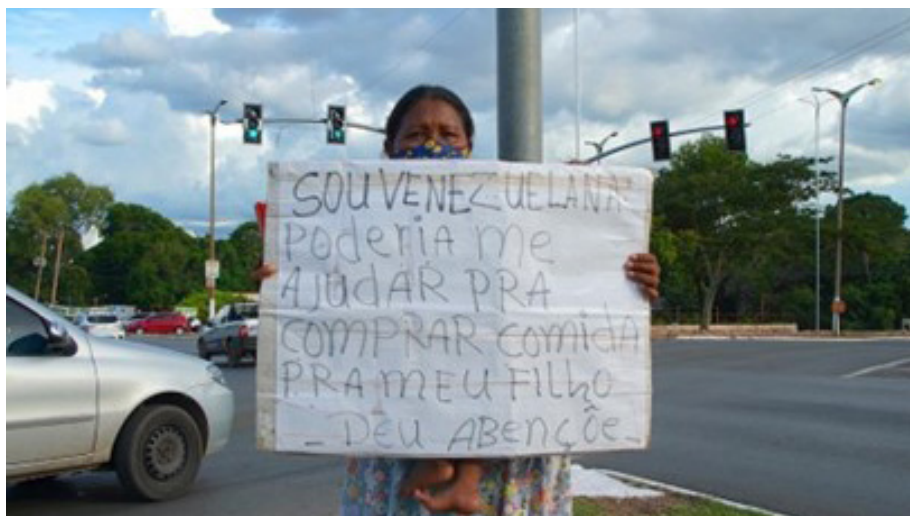 SOU VENEZUELANA
PODERIA ME
AJUDAR PRA
COMPRAR COMIDA
PRA MEU FILHO
- DEU ABENÇÔE -